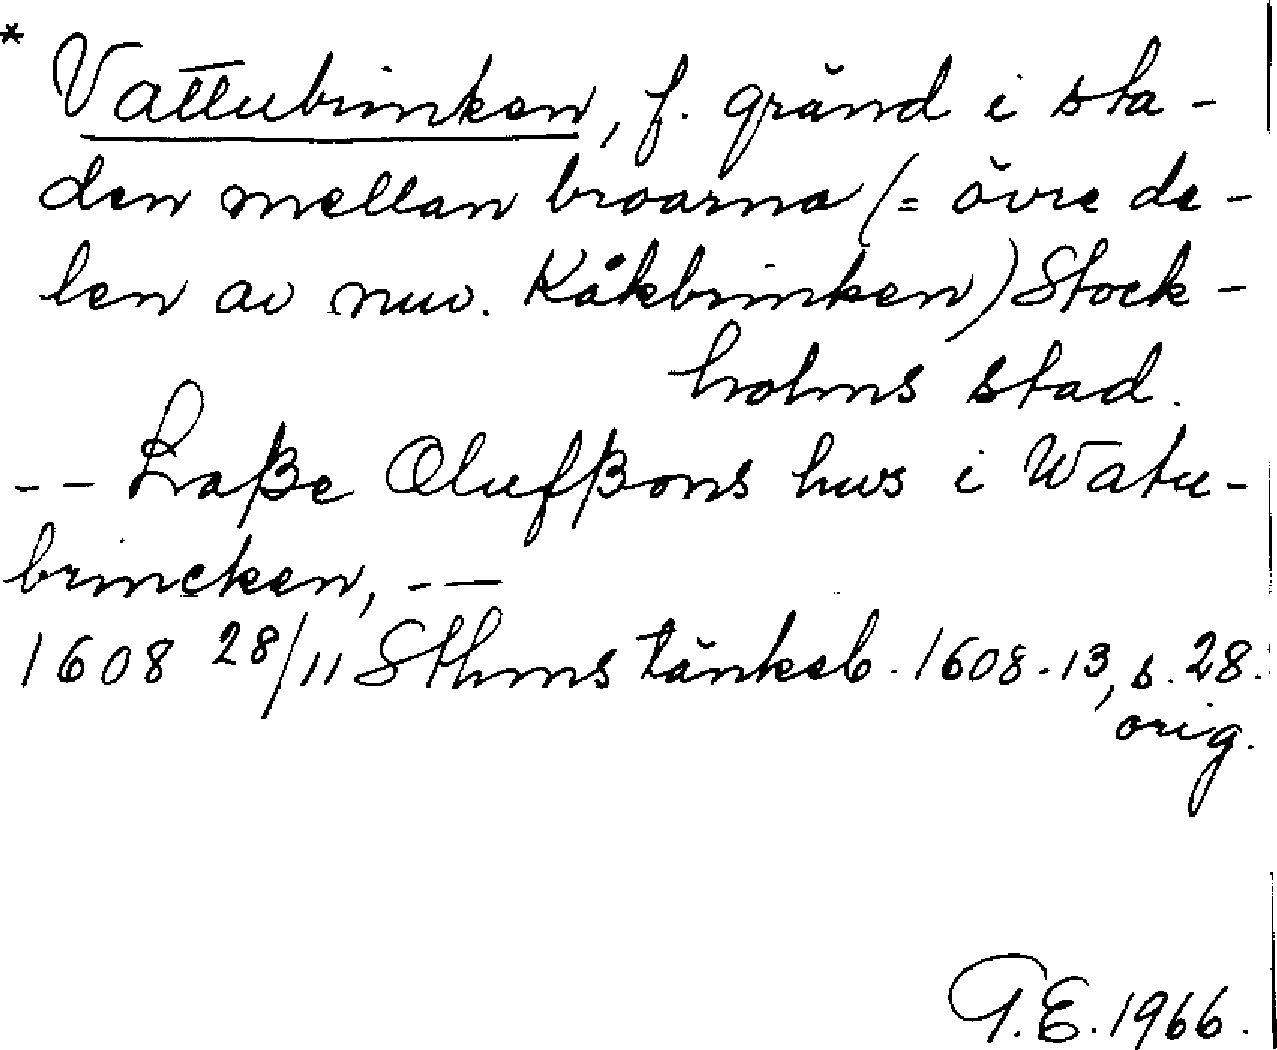 * Vattubrinken, f. gränd i sta-
den mellan broarna (= övre de-
len av nuv. Kåkbrinken) Stock-
holms stad.
-- Laße Olufßons hus i Watu-
brincken, --
1608 28/11 Sthms tänkeb. 1608-13, s. 28.
orig.
G.E. 1966.